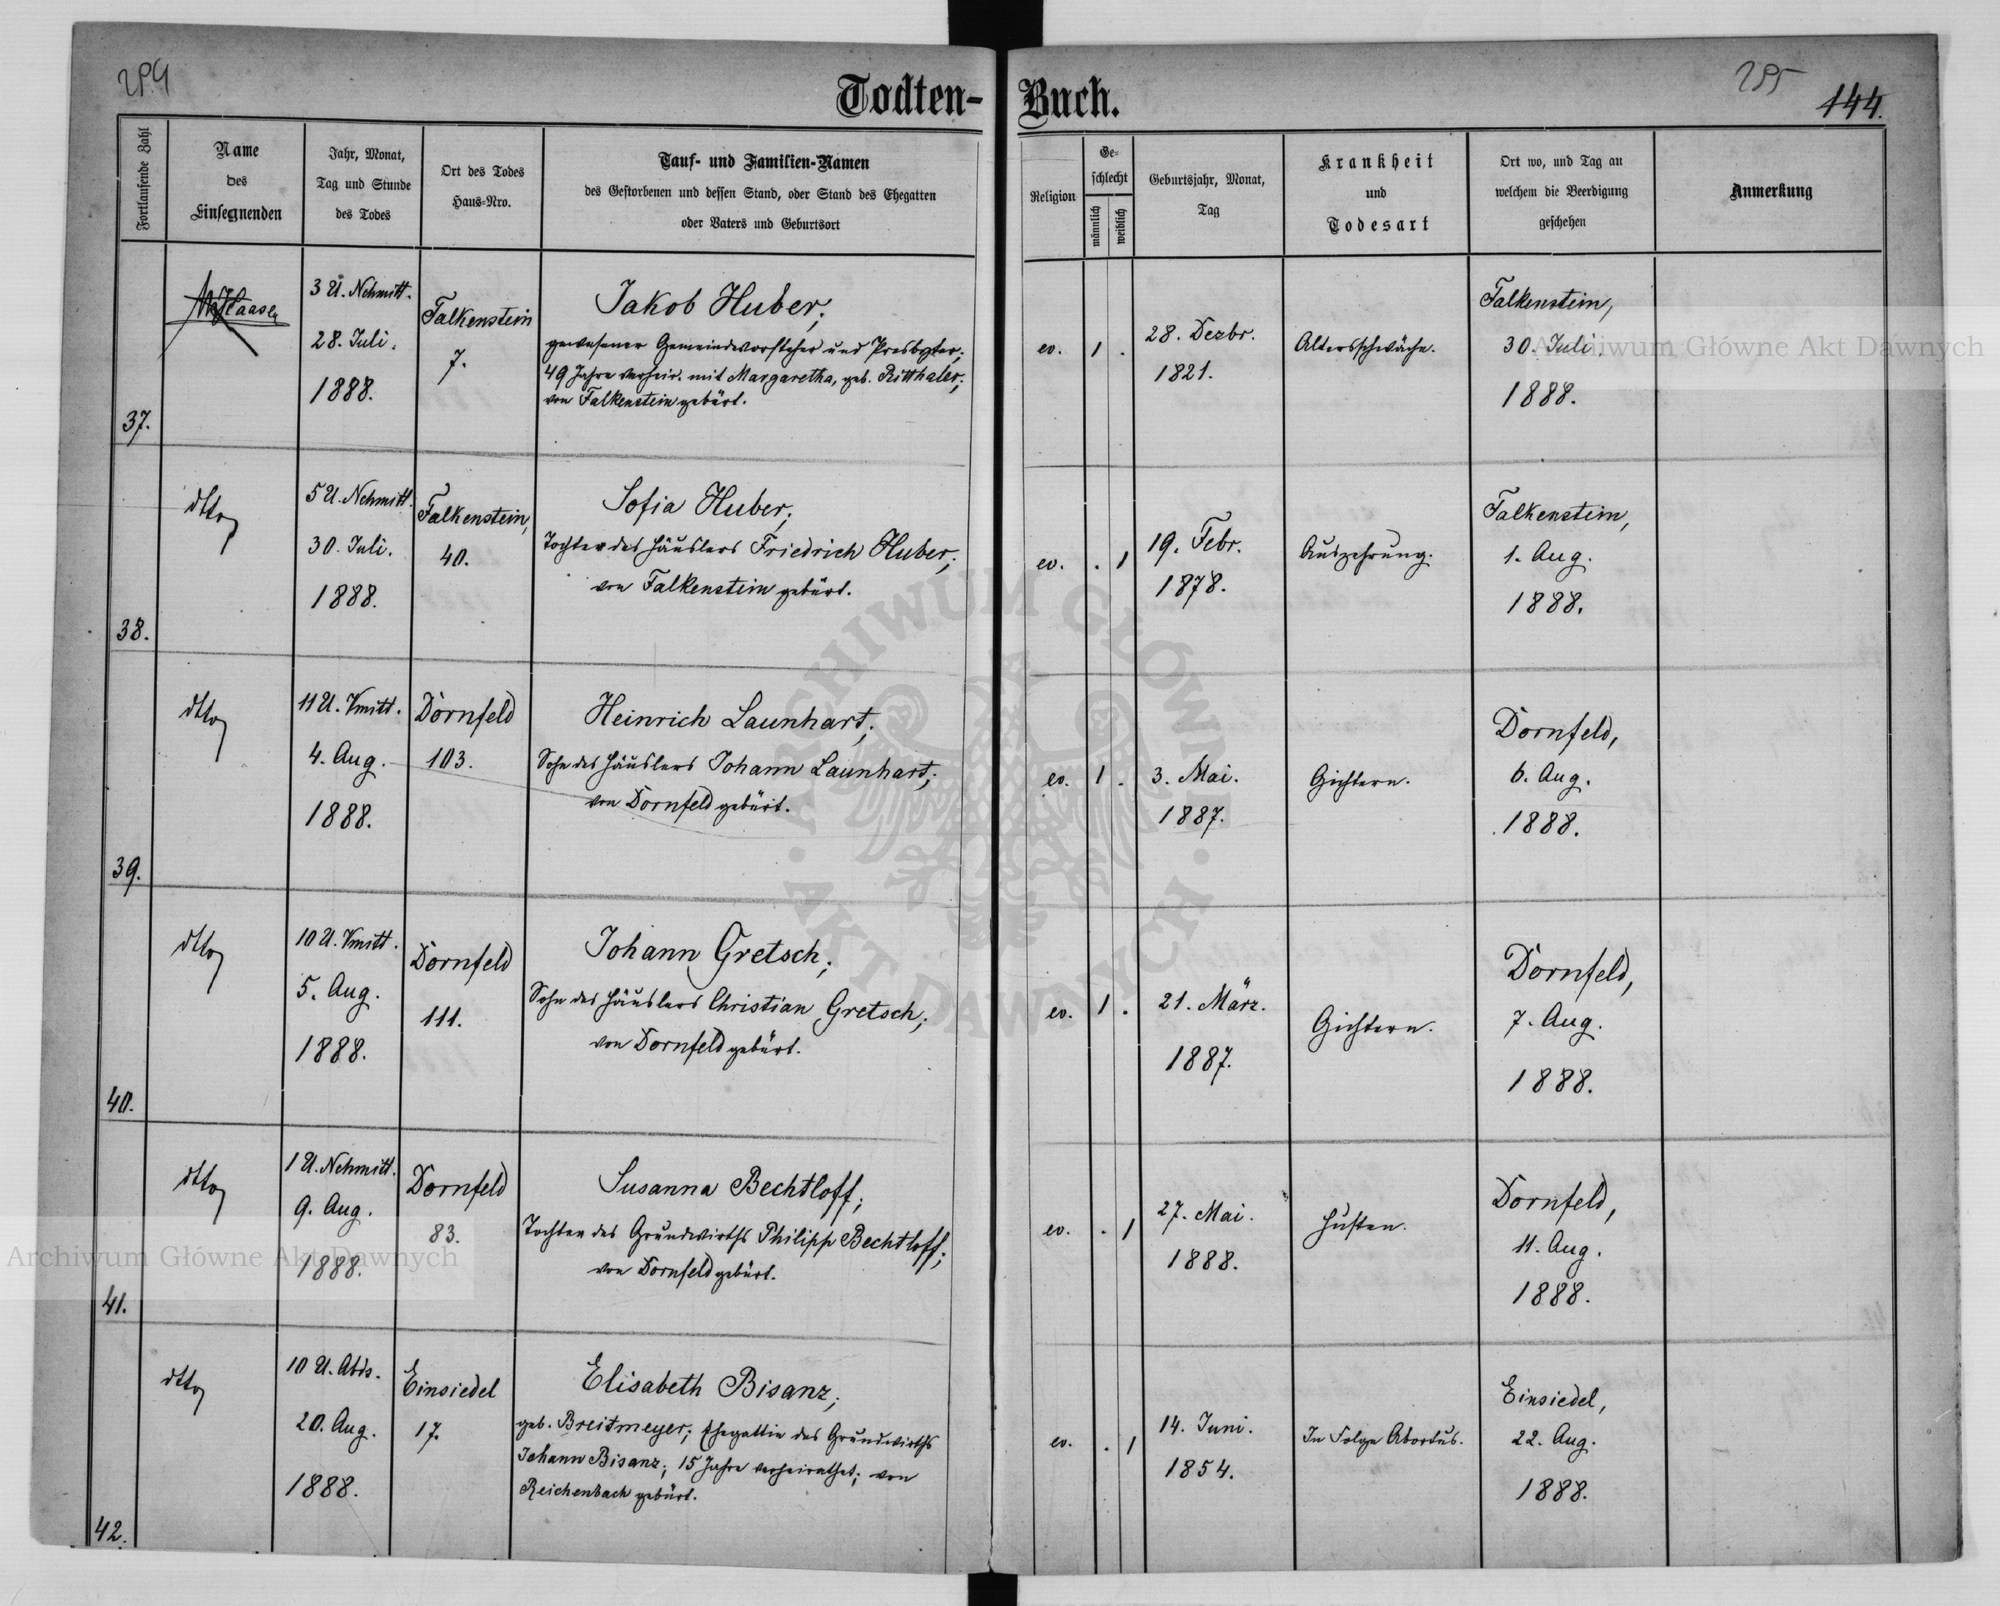 284
285
144.
Todten-Buch.
Fortlaufende Zahl
Name
des
Einsegnenden
Jahr, Monat,
Tag und Stunde
des Todes
Ort des Todes
Haus-Nro.
Tauf- und Familien-Namen
des Gestorbenen und dessen Stand, oder Stand des Ehegatten
oder Vaters und Geburtsort
Religion
Ge-
schlecht
männlich
weiblich
Geburtsjahr, Monat,
Tag
Krankheit
und
Todesart
Ort wo, und Tag an
welchem die Beerdigung
geschehen
Anmerkung
37.
Haase
3 U. Nchmitt.
28. Juli.
1888.
Falkenstein
7.
Jakob Huber;
gewesener Gemeindevorsteher und Presbyter;
49 Jahre verheir. mit Margaretha, geb. Ritthaler;
von Falkenstein gebürt.
ev.
1
.
28. Dezbr.
1821.
Altersschwäche.
Falkenstein,
30. Juli.
1888.
38.
dtto
5 U. Nchmitt.
30. Juli.
1888.
Falkenstein,
40.
Sofia Huber;
Tochter des Häuslers Friedrich Huber;
von Falkenstein gebürt.
ev.
.
1
19. Febr.
1878.
Auszehrung.
Falkenstein,
1. Aug.
1888.
39.
dtto
11 U. Vmitt.
4. Aug.
1888.
Dornfeld
103.
Heinrich Launhart;
Sohn des Häuslers Johann Launhart;
von Dornfeld gebürt.
ev.
1
.
3. Mai.
1887.
Gichtern.
Dornfeld,
6. Aug.
1888.
40.
dtto
10 U. Vmitt.
5. Aug.
1888.
Dornfeld
111.
Johann Gretsch;
Sohn des Häuslers Christian Gretsch;
von Dornfeld gebürt.
ev.
1
.
21. März.
1887.
Gichtern.
Dornfeld,
7. Aug.
1888.
41.
dtto
1 U. Nchmitt.
9. Aug.
1888.
Dornfeld
83.
Susanna Bechtloff;
Tochter des Grundwirths Philipp Bechtloff;
von Dornfeld gebürt.
ev.
.
1
27. Mai.
1888.
Husten.
Dornfeld,
11. Aug.
1888.
42.
dtto
10 U. Abds.
20. Aug.
1888.
Einsiedel
17.
Elisabeth Bisanz;
geb. Breitmeyer; Ehegattin des Grundwirths
Johann Bisanz; 15 Jahre verheirathet; von
Reichenbach gebürt.
ev.
.
1
14. Juni.
1854.
In Folge Abortus.
Einsiedel,
22. Aug.
1888.
Archiwum Główne Akt Dawnych
Archiwum Główne Akt Dawnych
ARCHIWUM GŁÓWNE
AKT DAWNYCH